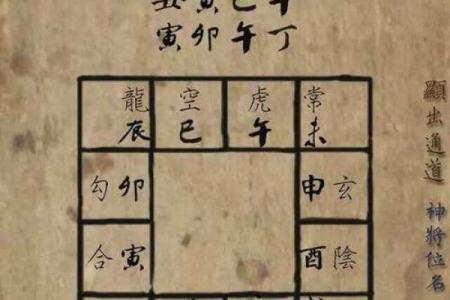 丑寅巳午
寅卯午丁
龍 空 虎 常
辰 巳 午 未
勾卯 申玄
合寅 酉陰
顯出通道 神將位名